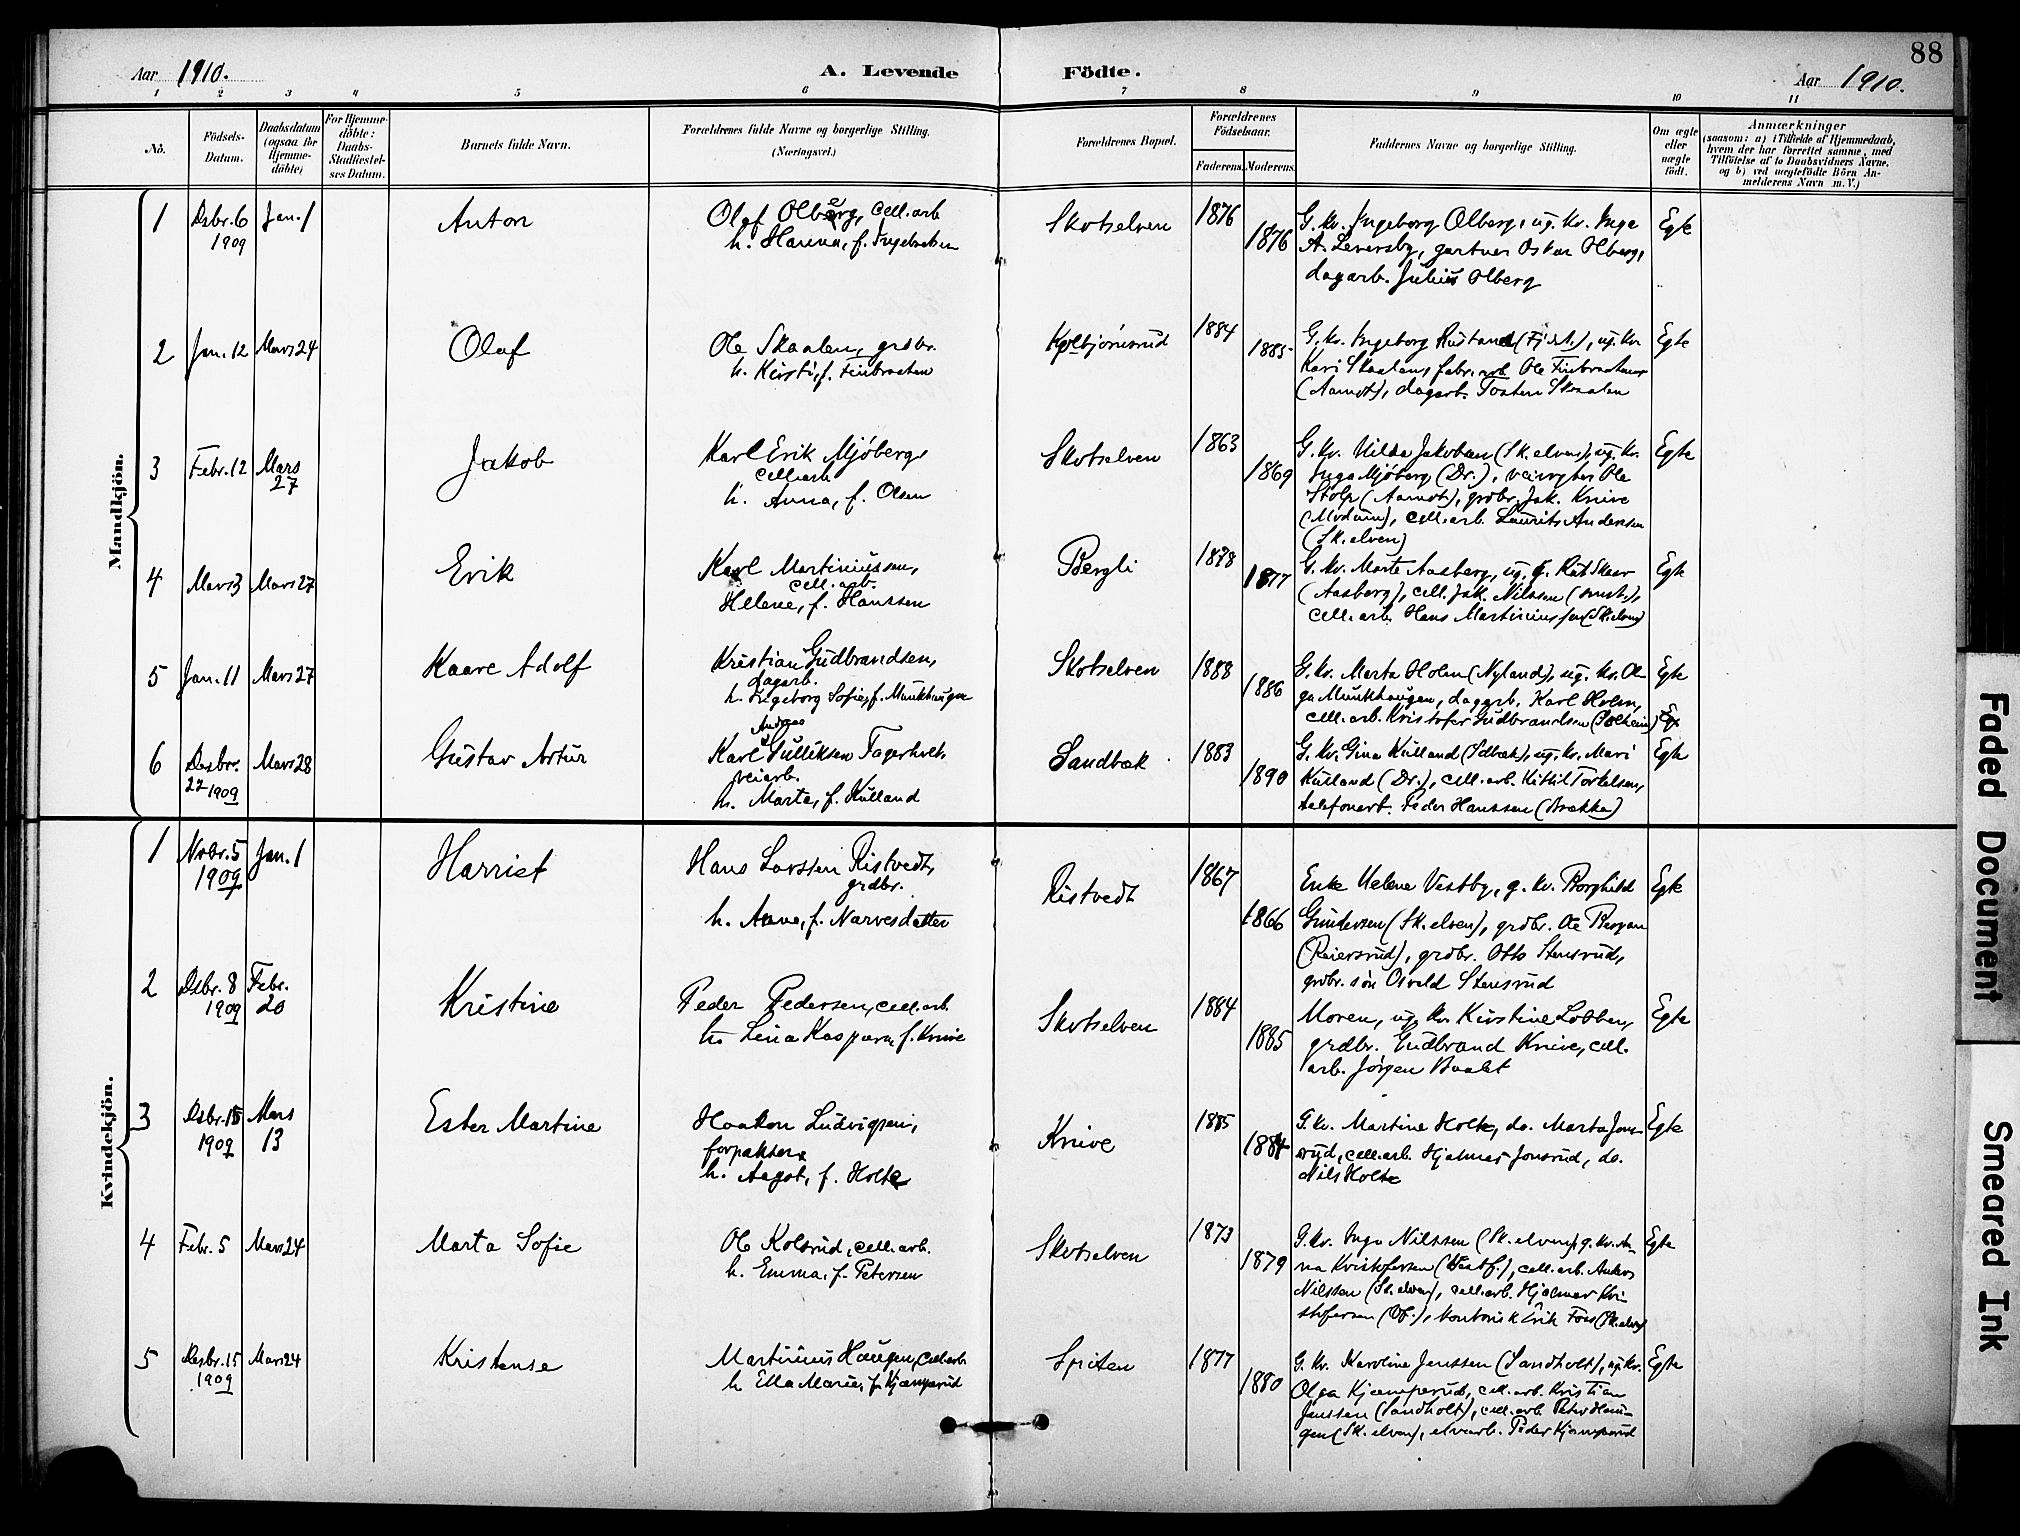 88
Aar 1910.
A. Levende Födte.
Aar 1910.
1 2 3 4 5 6 7 8 9 10 11
No.
Födsels-Datum.
Daabsdatum (ogsaa for Hjemmedöbte)
For Hjemmedöbte: Daabs-Stadfæstelses Datum.
Barnets fulde Navn.
Forældrenes fulde Navne og borgerlige Stilling.
(Næringsvei.)
Forældrenes Bopæl.
Forældrenes Födselsaar.
Faderens. Moderens.
Faddernes Navne og borgerlige Stilling.
Om ægte eller uægte födt.
Anmærkninger
(saasom: a) i Tilfælde af Hjemmedaab,
hvem der har forrettet samme, med
Tilföielse af to Daabsvidners Navne,
og b) ved uægtefödte Börn Anmelderens Navn m. V.)
Mandkjön.
1 Dsbr. 6 1909 Jan. 1 Anton
Olaf Olberg, cell.arb
h. Hanna, f. Ingebretsen
Skotselven 1876 1876
G. kv. Ingeborg Olberg, ug. kv. Inga
A. Leversby, gartner Oskar Olberg,
dagarb. Julius Olberg
Egte
2 Jan. 12 Mars 24 Olaf
Ole Skaalen, grdbr.
h. Kirsti, f. Finbraaten
Kolbjörnsrud 1884 1885
G. kv. Ingeborg Rustand, ug. kv
Kari Skaalen, fabr. arb. Ole Finbraaten
(Aamot), dagarb. Torsten Skaalen
Egte
3 Febr. 12 Mars 27 Jakob
Karl Erik Mjöberg,
cell.arb
h. Anna, f. Olsen
Skotselven 1863 1869
G. kv. Hilda Jakobsen (Sk.elven), ug. kv.
Inga Mjöberg (Dr.), Ole
Stolp (Aamot), grdbr. Jak. Knive
(Modum), cell.arb. Laurits Andersen
(Sk.elven)
Egte
4 Mars 3 Mars 27 Erik
Karl Martiniussen,
cell. arb.
Helene, f. Hanssen
Bergli 1878 1877
G. kv. Marte Aasberg, ug.
(Aasberg), cell. Jak. Nilssen
cell. arb. Hans Martiniussen (Sk.elven)
Egte
5 Jan. 11 Mars 27 Kaare Adolf
Kristian Gudbrandsen,
dagarb.
h. Ingeborg Sofie, f. Munkhaugen
Skotselven 1888 1886
G. kv. Marta Holm (Nyland), ug. kv. Ol-
ga Munkhaugen, dagarb. Karl Holm,
cell. arb. Kristofer Gudbrandsen (Solheim)
Egte
6 Desbr. 27 1909 Mars 28 Gustav Artur
Andreas
Karl Gulliksen Fagerholt,
veiarb.
h. Marte, f. Kulland
Sandbæk 1883 1890
G. kv. Gina Kulland (Sdbæk), ug. kv. Mari
Kulland (Dr.), cell. arb. Kittil Torkelsen,
telefonarb. Peder Hanssen (Brekka)
Egte
Kvindekjön.
1 Nvbr. 5 1909 Jan. 1 Harriet
Hans Larssen Ristvedt,
grdbr.
h. Anne, f. Narvesdatter
Ristvedt 1867 1866
Enke Helene Vestby, g. kv. Borghild
Gundersen (Sk.elven), grdbr. Ole Bergan
(Reiersrud), grdbr. Otto Stensrud,
grdbr. sön Osvald Stensrud
Egte
2 Dsbr. 8 1909 Febr. 20 Kristine
Peder Pedersen, cell.arb
h. Lina Kaspara, f. Knive
Skotselven 1884 1885
Moren, ug. kv Kirstine Lobben,
grdbr. Gudbrand Knive, cell.
arb. Jörgen
Egte
3 Dsbr. 15 1909 Mars 13 Ester Martine
Haakon Ludvigsen,
forpakter,
h. Aagot, f. Holte
Knive 1885 1884
G. kv. Martine Holte, do. Marta Jons-
rud, cell.arb. Hjalmar Jonsrud, do.
Nils Holte
Egte
4 Febr. 5 Mars 24 Marta Sofie
Ole Kolsrud, cell. arb.
h. Emma, f. Petersen
Skotselven 1873 1879
G. kv. Inga Nilssen (Sk.elven), g. kv. An-
na Kristofersen (Vestf.), cell. arb. Anders
Nilssen (Sk.elven), cell.arb. Hjalmar Kri-
stofersen, Erik Foss (Sk.elven)
Egte
5 Desbr. 15 1909 Mars 24 Kristense
Martinius Haugen, cell.arb
h Ella Marie, f. Kjæmperud
Spiten 1877 1880
G. kv. Karoline Jenssen (Sandholt), ug. kv.
Olga Kjæmperud, cell. arb. Kristian
Jenssen (Sandholt), cell. arb Peter Hau-
gen (Sk.elven), elvearb. Peder Kjæmperud
Egte
Faded Document
Smeared Ink